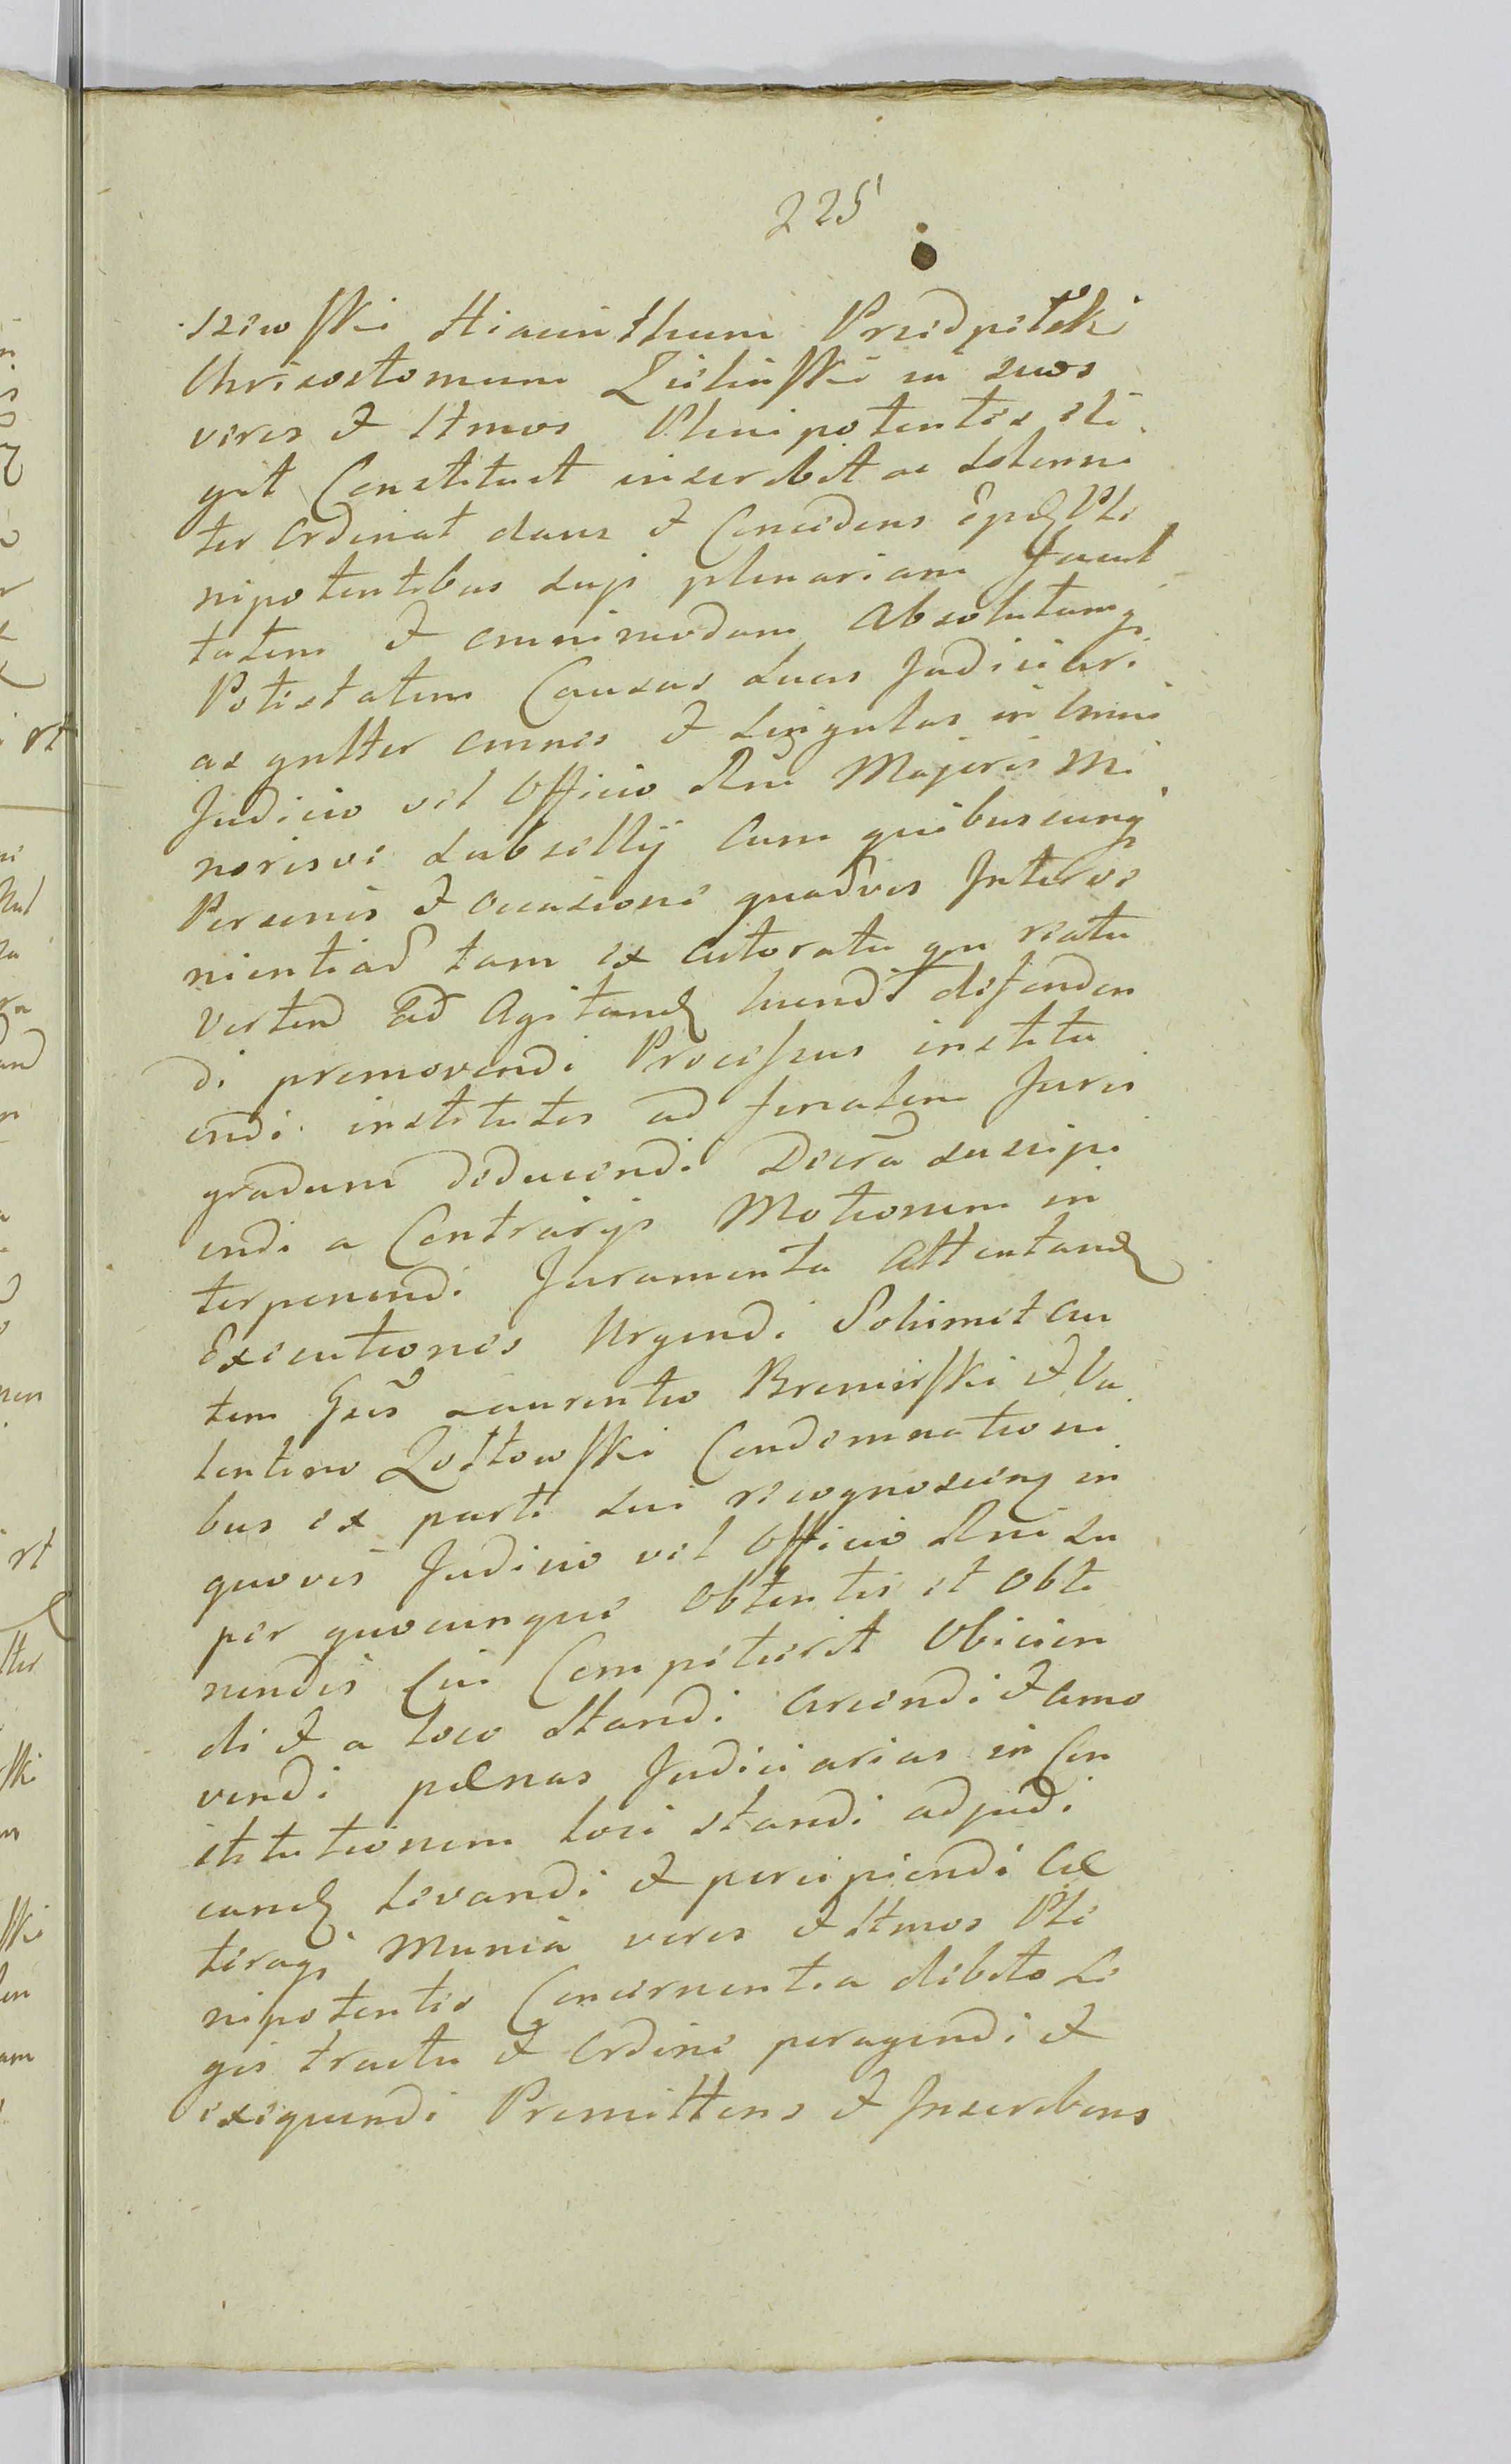 225
szewski Hiacinthum Przedpełski
Chrisostomum Zieliński in suos
veres et ltmos Plenipotentes eli
git Constituit inscribit ac solenni
ter ordinat dans et Concedens Ple
nipotentibus suis plenariam facul
tatem et omnimodam absolutamq
Potestatem Causas suas Judiciari
as gnltter omnes et singulas in omni
Judicio vel Officio Rni Majoris Mi
norisve Subsellij Cum quibuscunq
Personis et occasione quadvis Interve
nientiad tam ex actoratu qm reatu
verten ad Agitand luendi defenden
di promovendi Processus institu
endi institutos ad finalem Juris
gradum deducendi Decra suscipi
endi a Contrarijs Motionem in
terponendi Juramenta attentand
Executiones Urgendi Solumet au
tem Gsis Laurentio Bremirski et Va
lentino Żołtowski Condemnationi
bus ex parte sui recognoscenq in
quovis Judicio vel Officio Rni su
per quocunque obtentis et obti
nendis Cui Competierit Obiicien
di et a loco standi arcendi et amo
vendi pœnas Judiciarias in Con
stitutionem loci standi adjudi
cand levandi et percipiendi Cæ
teraq Munia veros et ltmos Ple
nipotentes Concernentia debito Le
gis tractu et ordine peragendi et
exequendi Promittens et Inscribens